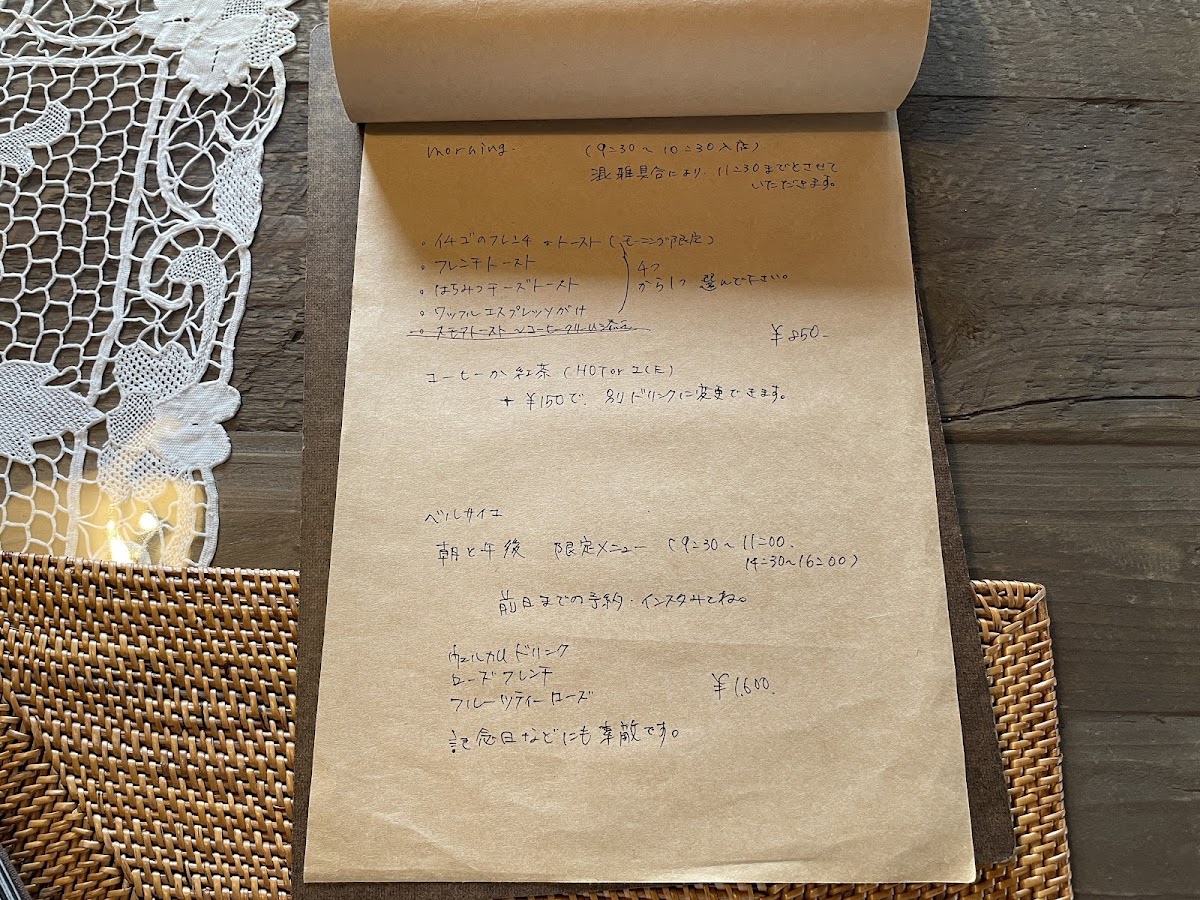 morning.
(9:30〜10:30入店)
混雑具合により、11:30までとさせて
いただきます。
。イチゴのフレンチトースト(モーニング限定)
。フレンチトースト
。はちみつチーズトースト
。ワッフルエスプレッソがけ
4つ
から1つ 選んで下さい。
。スモアトースト〜コーヒークリーム添え
¥850-
コーヒーか紅茶(HOT or ICE)
+ ¥150で、別ドリンクに変更できます。
ベルサイユ
朝と午後 限定メニュー (9:30〜11:00、
14:30〜16:00)
前日までの予約・インスタみてね。
ウェルカムドリンク
ローズフレンチ
フルーツティーローズ
¥1,600.
記念日などにも素敵です。